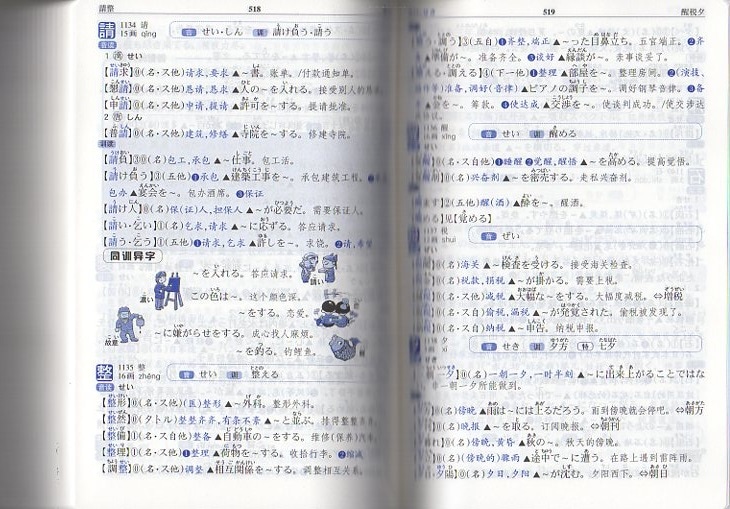 請整 518
請 1134 請
15画 qǐng
音 せい・しん 訓 請け負う・請う
音读
1 漢 せい
【請求】0(名・ス他)请求,要求 ▲~書。账单。/付款通知单。
【懇請】0(名・ス他)恳请,恳求 ▲人の~を入れる。接受别人的恳
【申請】0(名・ス他)申请,提请 ▲許可を~する。提请批准。
2 しん
【普請】0(名・ス他)建筑,修缮 ▲寺院を~する。修建寺院。
训读
【請負】3 0(名)包工,承包 ▲~仕事。包工活。
【請け負う】3(五他)❶承包 ▲建築工事を~。承包建筑工程。
包办 ▲宴会を~。包办酒席。❸保证
【請け人】0(名)保(证)人,担保人 ▲~が必要だ。需要保证人。
【請い・乞い】0(名)乞求,请求 ▲~に応ずる。答应请求。
【請う・乞う】①(五他)❶请求,乞求 ▲許しを~。求饶。❷请,希望
同训异字
~を入れる。答应请求。
請い
濃い
この色は~。这个颜色深。
~をする。恋爱。
故意
~に嫌がらせをする。成心找人麻烦。
~を釣る。钓鲤鱼。
整 1135 整
16画 zhěng
音 せい 訓 整える
音读 せい
【整形】0(名・ス他)(医)整形 ▲~外科。整形外科。
【整然】0(タトル)整整齐齐,有条不紊 ▲~と並ぶ。排得整整齐
【整備】①(名・ス自他)整备 ▲自動車の~をする。维修(保养)汽车
【整理】①(名・ス他)❶整理 ▲荷物を~する。收拾行李。❷缩减
【調整】0(名・ス他)调整 ▲相互関係を~する。调整相互关系。
519 醒税夕
調う】3(五自)❶齐整,端正 ▲~った目鼻立ち。五官端正。❷齐
準備が~。准备齐全。❸谈好 ▲縁談が~。亲事谈妥了。
調える】4(下一他)❶整理 ▲部屋を~。整理房间。❷(演技、
等)准备,调好(音律) ▲ピアノの調子を~。调好钢琴音律。❸备
を~。筹款。❹使达成 ▲交渉を~。使谈判成功。/使交涉达
醒
xǐng
音 せい 訓 醒める
】0(名・ス自他)❶睡醒❷觉醒,醒悟 ▲~を高める。提高觉悟。
】0(名)兴奋剂 ▲~を密売する。走私兴奋剂。
】2(五他)醒(酒) ▲酔を~。醒酒。
める]见[覚める]
税
shuì
音 ぜい
】0(名)海关 ▲~検査を受ける。接受海关检查。
】0(名)税款,捐税 ▲~が掛かる。需要上税。
】0(名・ス他)减税 ▲大幅な~をする。大幅度减税。⇔増税
】0(名・ス自)偷税,漏税 ▲~が発覚された。偷税被发现了。
】0(名・ス自)纳税 ▲~申告。纳税申报。
夕
xī
音 せき 訓 夕方 特 七夕
一夕】0(名)一朝一夕,一时半刻 ▲~に出来上がることではな
一朝一夕所能做到。
】0(名)傍晚 ▲雨は~には上るだろう。雨到傍晚就会停吧。⇔朝方
】0(名)晚报 ▲~を取る。订阅晚报。⇔朝刊
】0(名)傍晚,黄昏 ▲秋の~。秋天的傍晚。
】0(名)(傍晚的)骤雨 ▲途中で~に遭う。在路上遇到雷阵雨。
夕陽】0(名)夕日,夕阳 ▲~が沈む。夕阳西下。⇔朝日